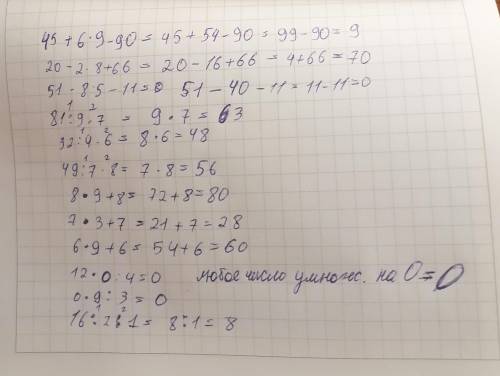 45 + 6 · 9 - 90 = 45 + 54 - 90 = 99 - 90 = 9
20 - 2 · 8 + 66 = 20 - 16 + 66 = 4 + 66 = 70
51 - 8·5 - 11 = 0 51 - 40 - 11 = 11 - 11 = 0
1 2
81 : 9 · 7 = 9 · 7 = 63
1 2
32 : 4 · 6 = 8 · 6 = 48
1 2
49 : 7 · 8 = 7 · 8 = 56
8 · 9 + 8 = 72 + 8 = 80
7 · 3 + 7 = 21 + 7 = 28
6 · 9 + 6 = 54 + 6 = 60
12 · 0 : 4 = 0 любое число умножес. на 0 = 0
0 · 9 : 3 = 0
1 2
16 : 2 : 1 = 8 : 1 = 8